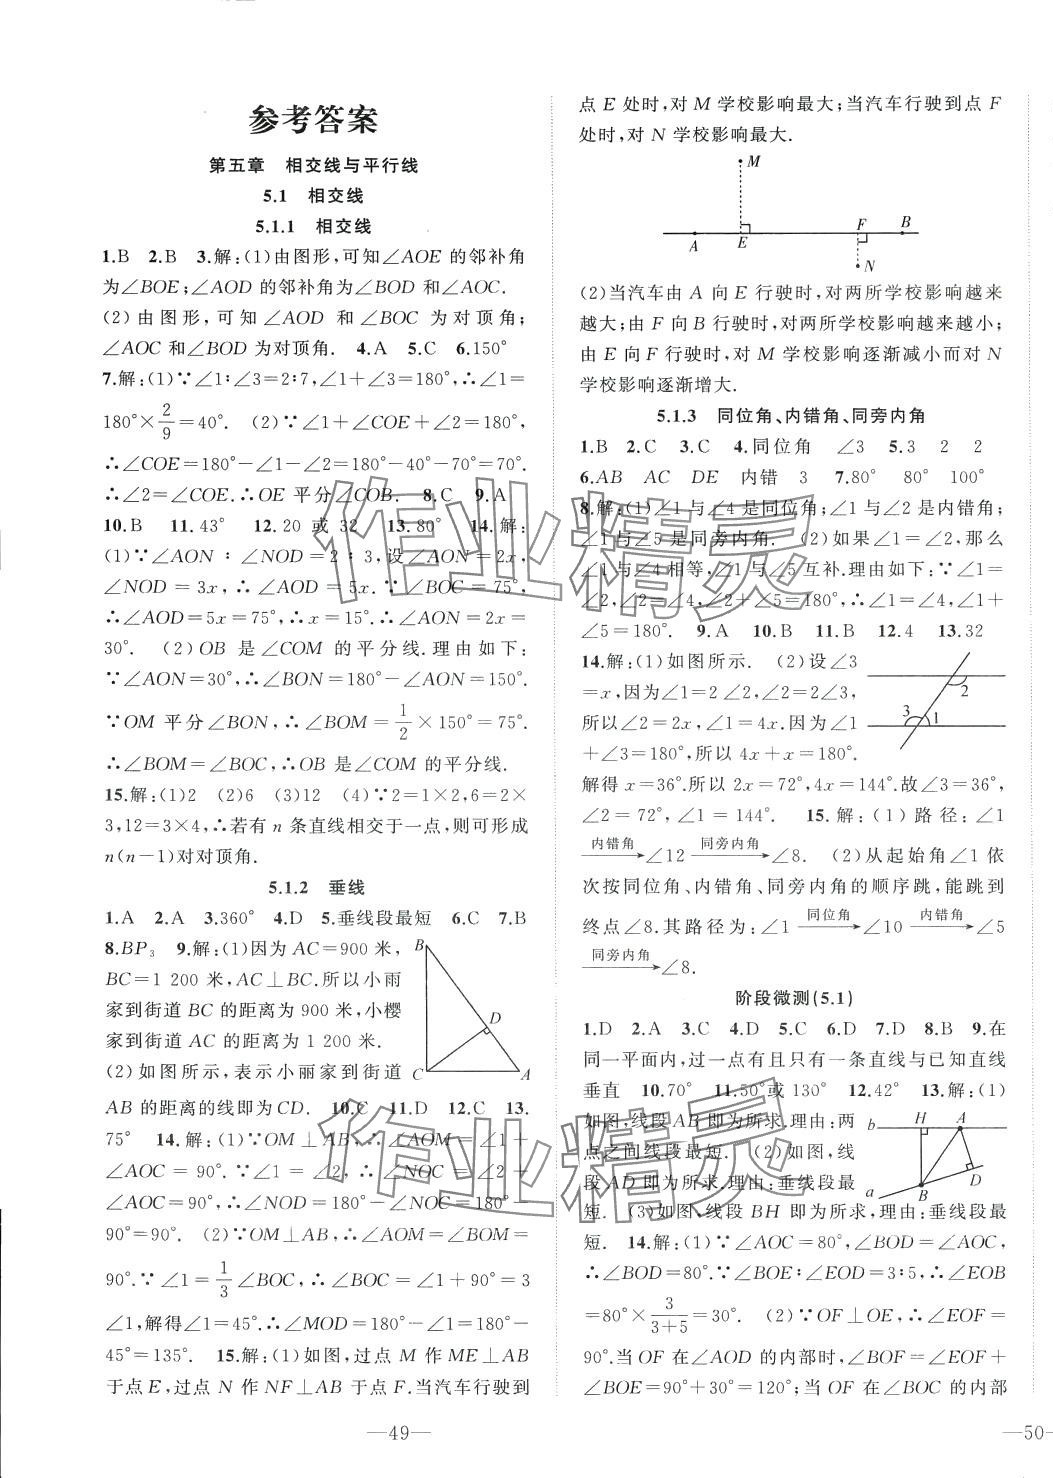 参考答案
第五章　相交线与平行线
5.1　相交线
5.1.1　相交线
1.B　2.B　3.解:(1)由图形,可知∠AOE 的邻补角
为∠BOE;∠AOD 的邻补角为∠BOD 和∠AOC.
(2)由图形,可知∠AOD 和∠BOC 为对顶角;
∠AOC 和∠BOD 为对顶角.　4.A　5.C　6.150°
7.解:(1)∵∠1∶∠3=2∶7,∠1+∠3=180°,∴∠1=
180°×2/9=40°.　(2)∵∠1+∠COE+∠2=180°,
∴∠COE=180°-∠1-∠2=180°-40°-70°=70°.
∴∠2=∠COE.∴OE 平分∠COB.　8.C　9.A
10.B　11.43°　12.20 或 32　13.80°　14.解:
(1)∵∠AON∶∠NOD=2∶3,设∠AON=2x,
∠NOD=3x,∴∠AOD=5x.∵∠BOC=75°,
∴∠AOD=5x=75°,∴x=15°.∴∠AON=2x=
30°.　(2)OB 是∠COM 的平分线.理由如下:
∵∠AON=30°,∴∠BON=180°-∠AON=150°.
∵OM 平分∠BON,∴∠BOM=1/2×150°=75°.
∴∠BOM=∠BOC,∴OB 是∠COM 的平分线.
15.解:(1)2　(2)6　(3)12　(4)∵2=1×2,6=2×
3,12=3×4,∴若有 n 条直线相交于一点,则可形成
n(n-1)对对顶角.
5.1.2　垂线
1.A　2.A　3.360°　4.D　5.垂线段最短　6.C　7.B
8.BP₃　9.解:(1)因为 AC=900 米,
BC=1 200 米,AC⊥BC.所以小雨
家到街道 BC 的距离为 900 米,小樱
家到街道 AC 的距离为 1 200 米.
(2)如图所示,表示小丽家到街道
AB 的距离的线即为CD.　10.C　11.D　12.C　13.
75°　14.解:(1)∵OM⊥AB,∴∠AOM=∠1+
∠AOC=90°.∵∠1=∠2,∴∠NOC=∠2+
∠AOC=90°,∴∠NOD=180°-∠NOC=180°-
90°=90°.　(2)∵OM⊥AB,∴∠AOM=∠BOM=
90°.∵∠1=1/3∠BOC,∴∠BOC=∠1+90°=3
∠1,解得∠1=45°.∴∠MOD=180°-∠1=180°-
45°=135°.　15.解:(1)如图,过点 M 作 ME⊥AB
于点 E,过点 N 作 NF⊥AB 于点 F.当汽车行驶到
B
D
C
A
—49—
点 E 处时,对 M 学校影响最大;当汽车行驶到点 F
处时,对 N 学校影响最大.
M
A
E
F
B
N
(2)当汽车由 A 向 E 行驶时,对两所学校影响越来
越大;由 F 向 B 行驶时,对两所学校影响越来越小;
由 E 向 F 行驶时,对 M 学校影响逐渐减小而对 N
学校影响逐渐增大.
5.1.3　同位角、内错角、同旁内角
1.B　2.C　3.C　4.同位角　∠3　5.3　2　2
6.AB　AC　DE　内错　3　7.80°　80°　100°
8.解:(1)∠1与∠4是同位角;∠1与∠2是内错角;
∠1与∠5是同旁内角.　(2)如果∠1=∠2,那么
∠1与∠4相等,∠1与∠5互补.理由如下:∵∠1=
∠2,∠2=∠4,∠2+∠5=180°,∴∠1=∠4,∠1+
∠5=180°.　9.A　10.B　11.B　12.4　13.32
14.解:(1)如图所示.　(2)设∠3
=x,因为∠1=2∠2,∠2=2∠3,
所以∠2=2x,∠1=4x.因为∠1
+∠3=180°,所以 4x+x=180°.
2
3
1
解得 x=36°.所以 2x=72°,4x=144°.故∠3=36°,
∠2=72°,∠1=144°.　15.解:(1)路径:∠1
内错角→∠12 同旁内角→∠8.　(2)从起始角∠1依
次按同位角、内错角、同旁内角的顺序跳,能跳到
终点∠8.其路径为:∠1 同位角→∠10 内错角→∠5
同旁内角→∠8.
阶段微测(5.1)
1.D　2.A　3.C　4.D　5.C　6.D　7.D　8.B　9.在
同一平面内,过一点有且只有一条直线与已知直线
垂直　10.70°　11.50°或 130°　12.42°　13.解:(1)
如图,线段 AB 即为所求.理由:两
点之间线段最短.　(2)如图,线
段 AD 即为所求.理由:垂线段最
短.　(3)如图,线段 BH 即为所求,理由:垂线段最
b
H
A
a
B
D
短.　14.解:(1)∵∠AOC=80°,∠BOD=∠AOC,
∴∠BOD=80°.∵∠BOE∶∠EOD=3∶5,∴∠EOB
=80°×3/(3+5)=30°.　(2)∵OF⊥OE,∴∠EOF=
90°.当 OF 在∠AOD 的内部时,∠BOF=∠EOF+
∠BOE=90°+30°=120°;当 OF 在∠BOC 的内部
—50—
作业精灵
作业精灵